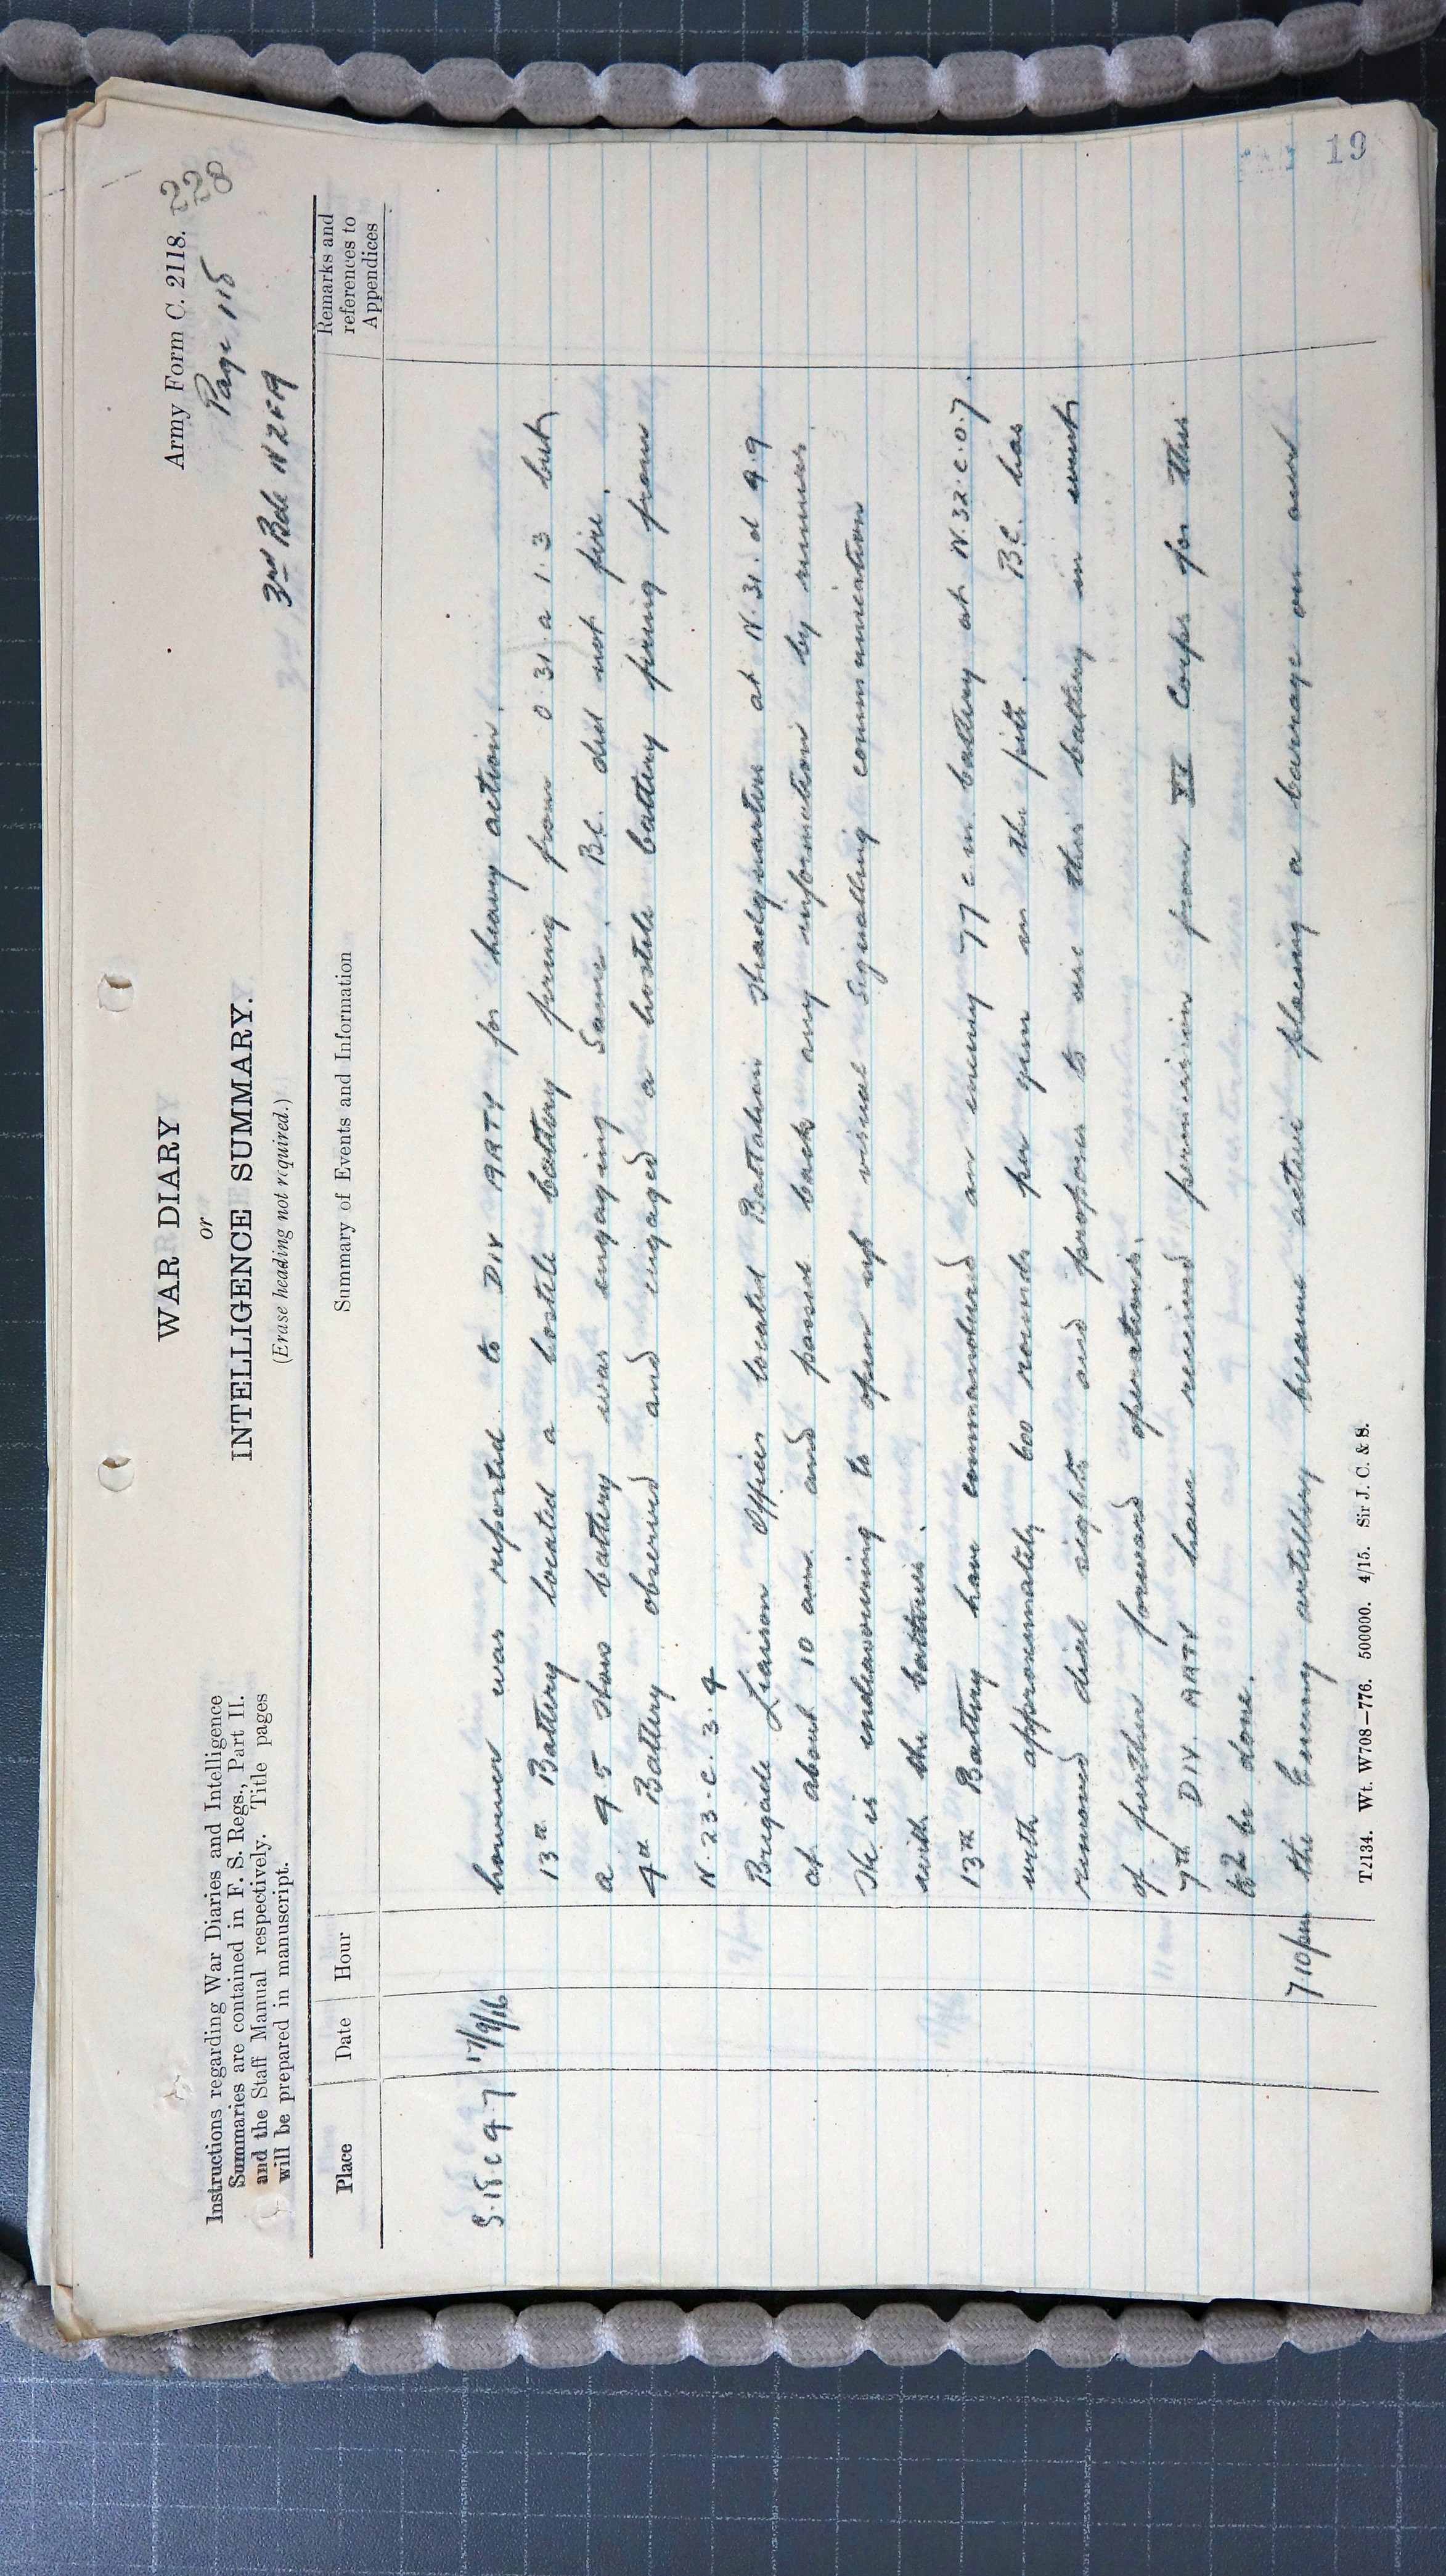 Army Form C. 2118.
228
Page 115
3rd Bde NZFA
WAR DIARY
or
INTELLIGENCE SUMMARY.
(Erase heading not required.)
Instructions regarding War Diaries and Intelligence
Summaries are contained in F. S. Regs., Part II.
and the Staff Manual respectively. Title pages
will be prepared in manuscript.
Place Date Hour Summary of Events and Information Remarks and references to Appendices
S.15.c 9.7 17/9/16 however was reported to DIV ARTY for heavy action.
13th Battery located a hostile battery firing from O 31. a 1.3 but
a 4.5 How battery was engaging same. B.C. did not fire.
4th Battery observed and engaged a hostile battery firing from
N. 23. c. 3. 4
Brigade Liaison Officer located Battalion Headquarters at N. 31. d 9.9
at about 10 am. and passed back any information by runner.
He is endeavouring to open up visual signalling communication
with the batteries.
13th Battery have commandeered an enemy 77 c m battery at N. 32. c. 0. 7.
with approximately 600 rounds per gun in the pits. B.C. has
removed dial sights and proposes to use this battery in event
of further forward operations.
7th DIV. ARTY have received permission from VI Corps for this
to be done.
7 10pm the Enemy artillery became active placing a barrage on and
T2134. Wt. W708—776. 500000. 4/15. Sir J. C. & S.
19